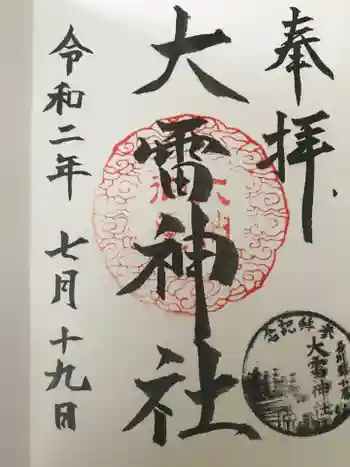 奉拝
大雷神社
令和二年 七月十九日
参拝記念
大雷神社